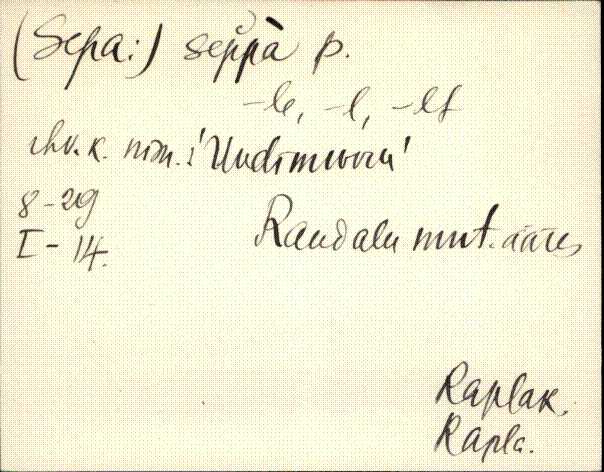 (Sepa:) sĕppà p.
-le, -l, -lt
ihv. k. nim.: 
8-29
I-14.
Raudalu mnt. ääres
Raplak.
Rapla.